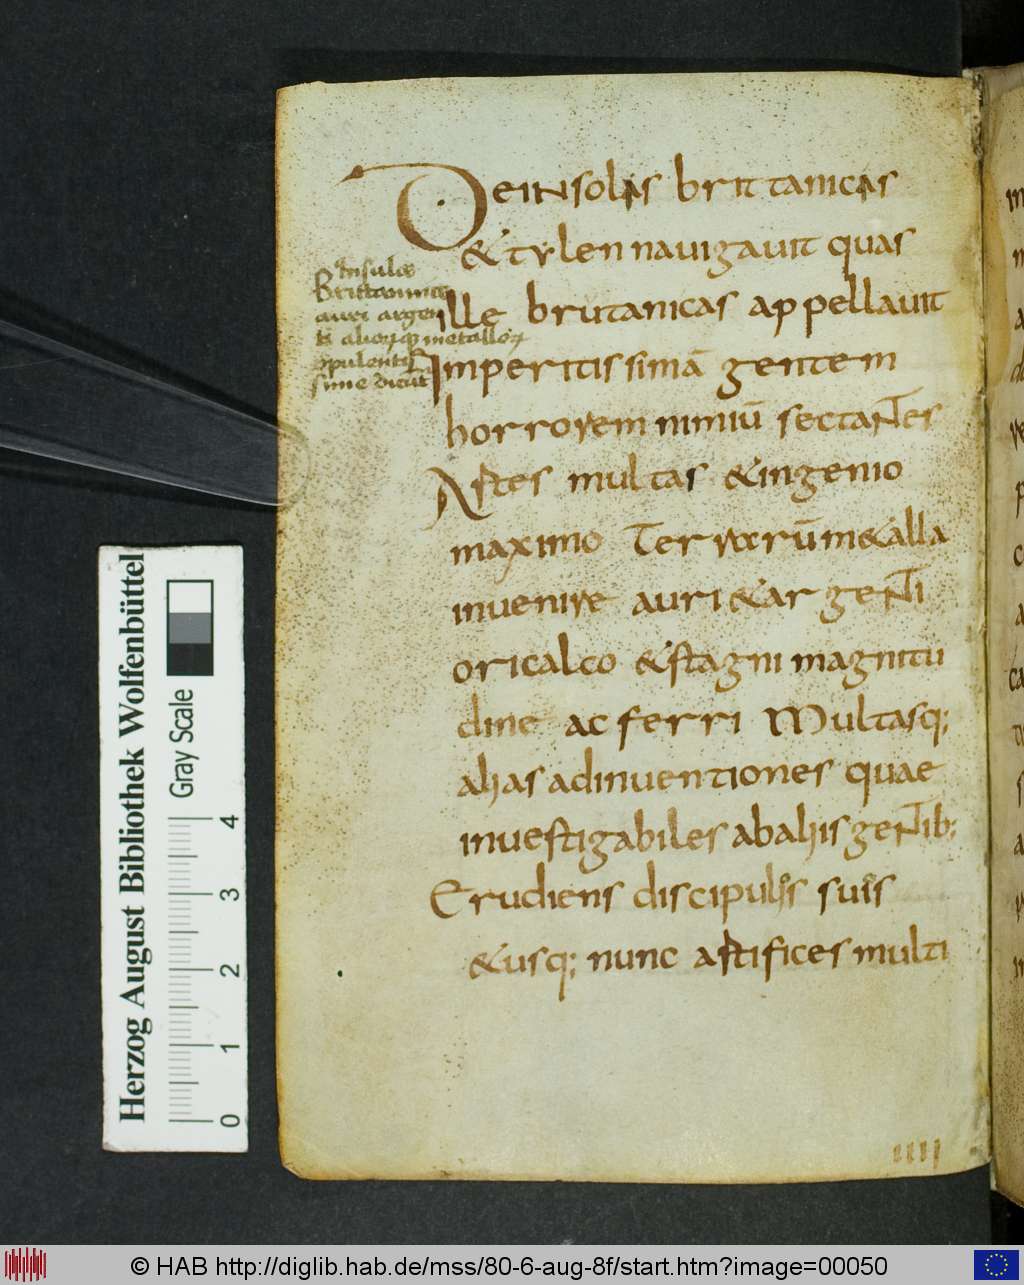 Deinsolas brittanicas
& tylen nauigauit quas
ille brutanicas appellauit
Imperitissimā gentem
horrorem nimiū sectantes
Artes multas & ingenio
maximo Terrarū m&alla
inuenire auri & argenti
oricalco & stagni magnitu
dine ac ferri Multasq;
alias adinuentiones quae
inuestigabiles ab aliis gentib;
Erudiens discipulis suis
& usq; nunc artifices multi
Insulae
Brittannice
auri argen
ti aliorūq metallorū
opulentis
sime dicūt
IIII
Herzog August Bibliothek Wolfenbüttel
Gray Scale
0 1 2 3 4
© HAB http://diglib.hab.de/mss/80-6-aug-8f/start.htm?image=00050